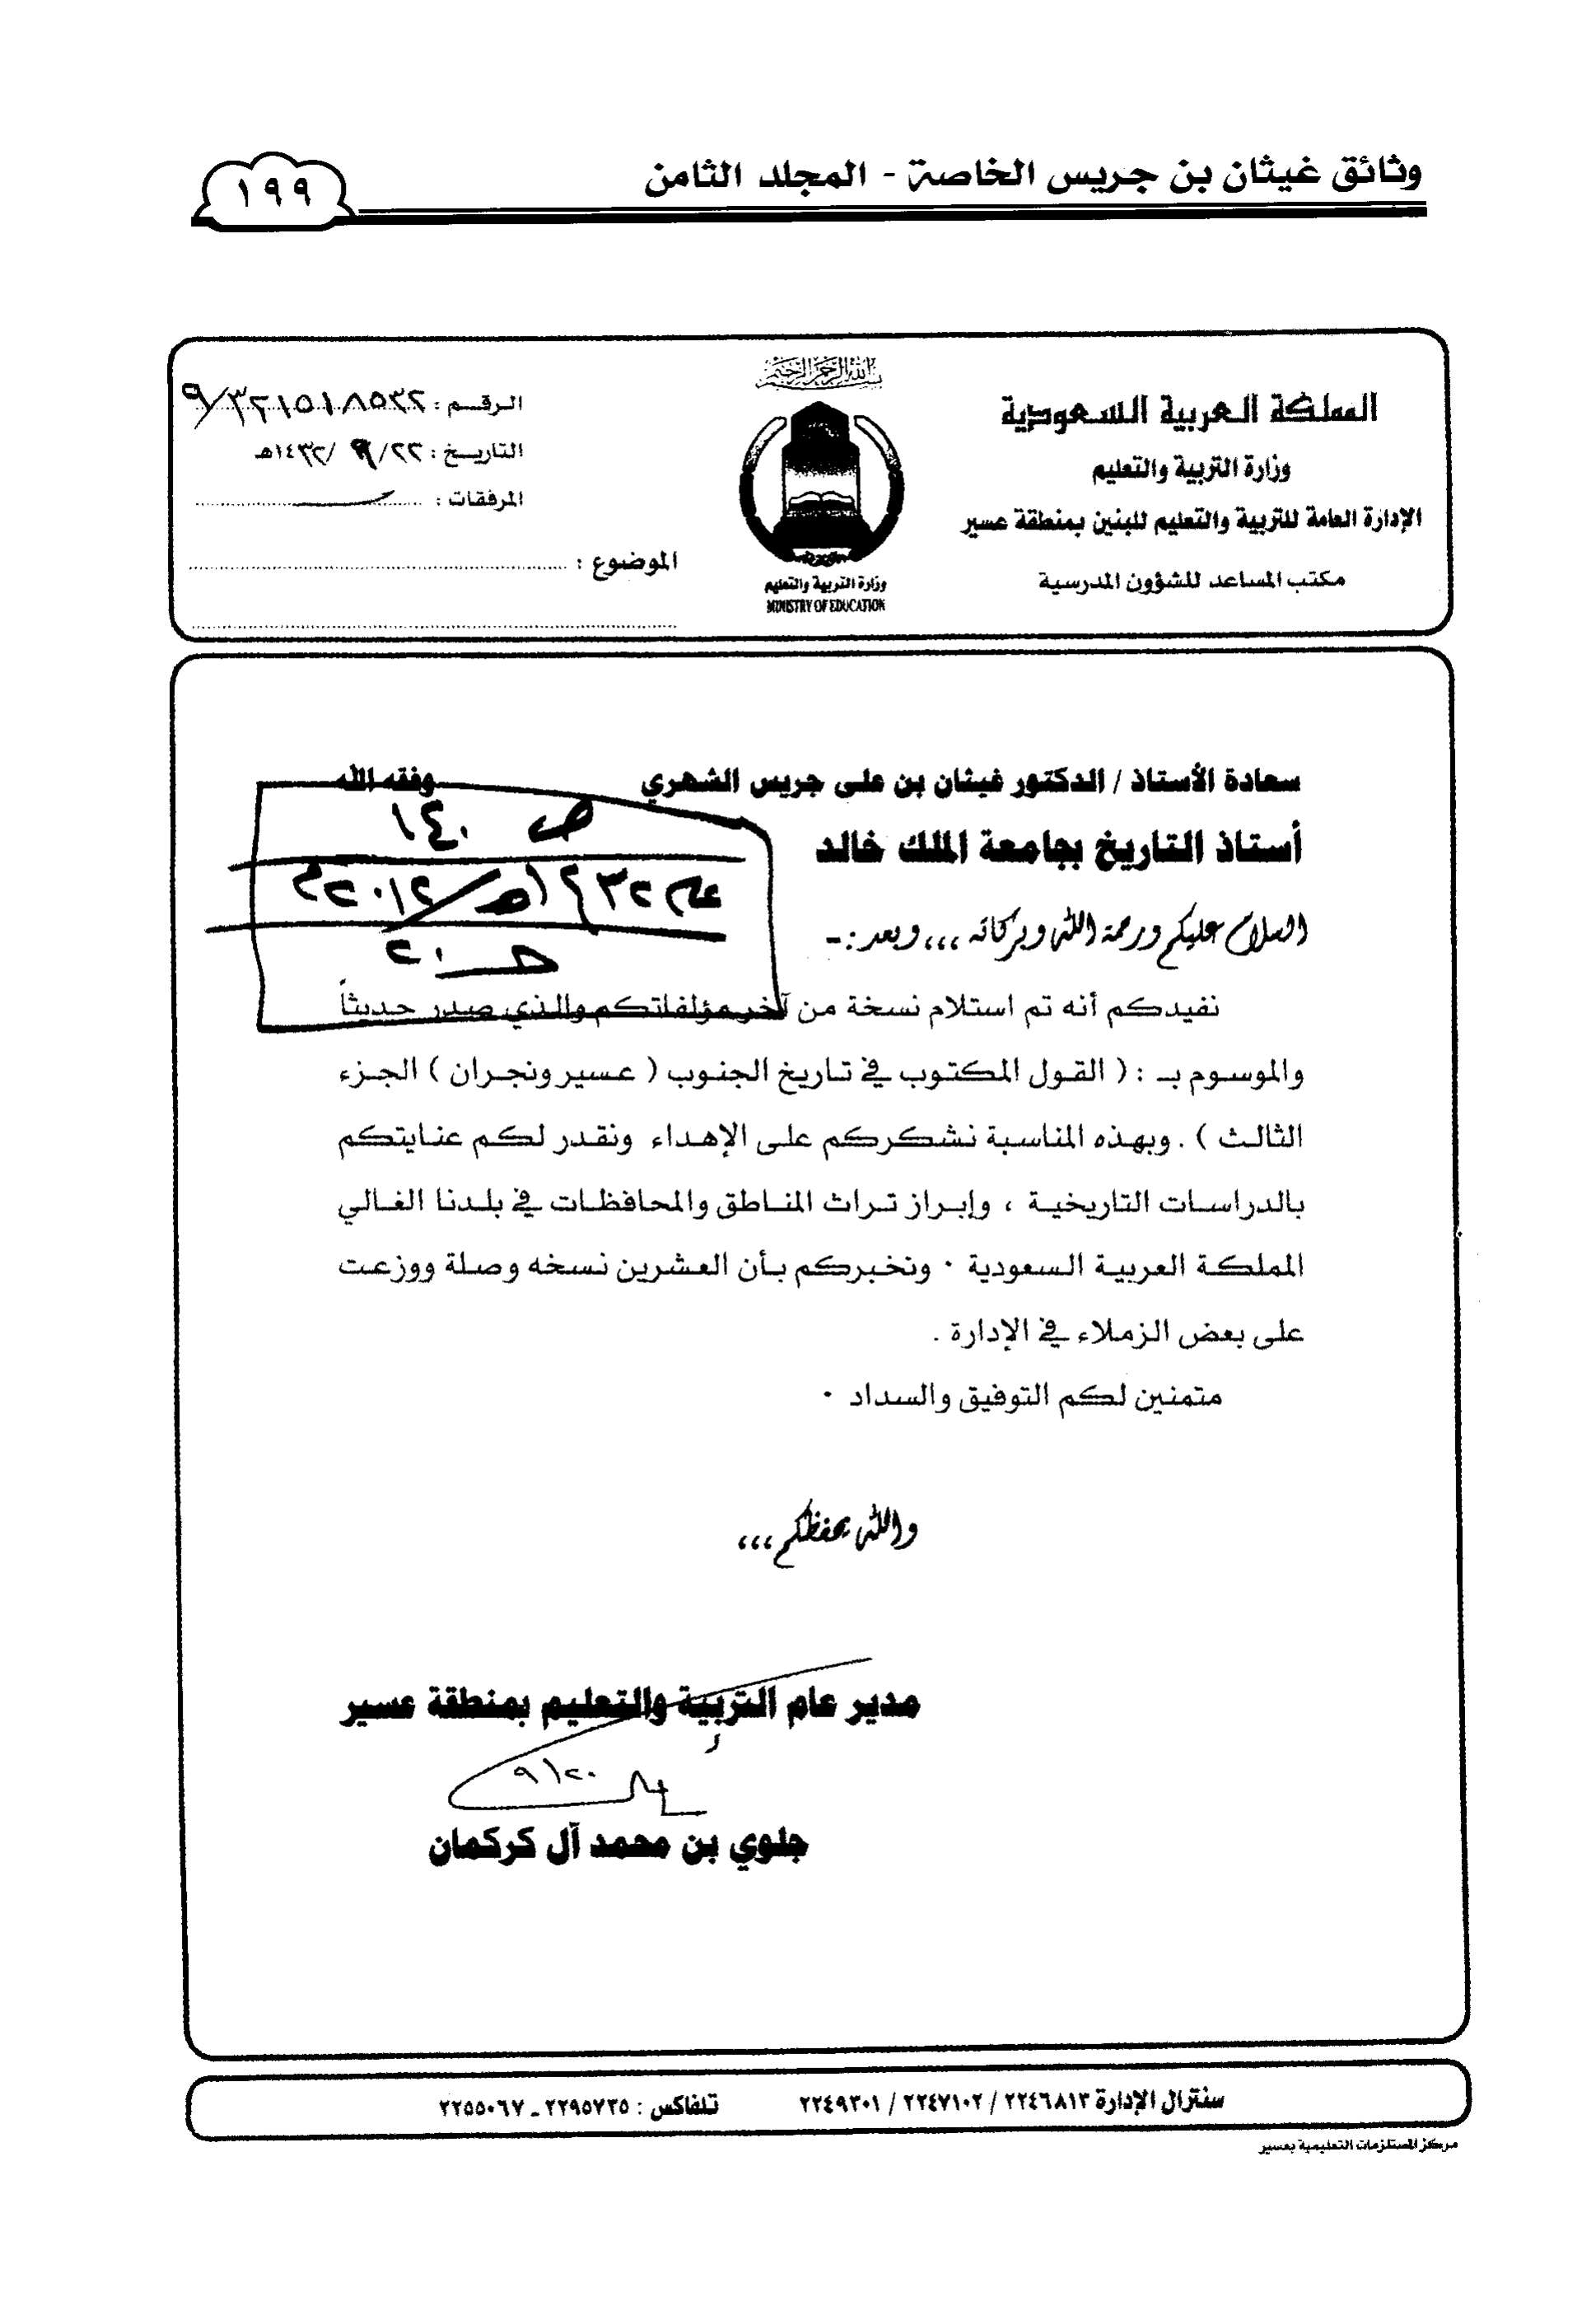 وثائق غيثان بن جريس الخاصة - المجلد الثامن
١٩٩
المملكة العربية السعودية
وزارة التربية والتعليم
الإدارة العامة للتربية والتعليم للبنين بمنطقة عسير
مكتب المساعد للشؤون المدرسية
بسم الله الرحمن الرحيم
وزارة التربية والتعليم
MINISTRY OF EDUCATION
الرقم : ٣٢١٥١٨٥٣٢/٩
التاريخ : ٢٢/ ٩ /١٤٣٢هـ
المرفقات :
الموضوع :
سعادة الأستاذ / الدكتور غيثان بن على جريس الشهري وفقه الله
أستاذ التاريخ بجامعة الملك خالد
ص ١٤٠
السلام عليكم ورحمة الله وبركاته ,,, وبعد :-
نفيدكم أنه تم استلام نسخة من آخر مؤلفاتكم والذي صدر حديثاً
والموسوم بـ : ( القول المكتوب في تاريخ الجنوب ( عسير ونجران ) الجزء
الثالث ) . وبهذه المناسبة نشكركم على الإهداء ونقدر لكم عنايتكم
بالدراسات التاريخية ، وإبراز تراث المناطق والمحافظات في بلدنا الغالي
المملكة العربية السعودية ٠ ونخبركم بأن العشرين نسخه وصلة ووزعت
على بعض الزملاء في الإدارة .
متمنين لكم التوفيق والسداد ٠
والله يحفظكم ,,,
مدير عام التربية والتعليم بمنطقة عسير
٩/٢٠
جلوي بن محمد آل كركمان
سنترال الإدارة ٢٢٤٦٨١٣ / ٢٢٤٧١٠٢ / ٢٢٤٩٣٠١ تلفاكس : ٢٢٩٥٧٣٥ ـ ٢٢٥٥٠٦٧
مركز المستلزمات التعليمية بعسير